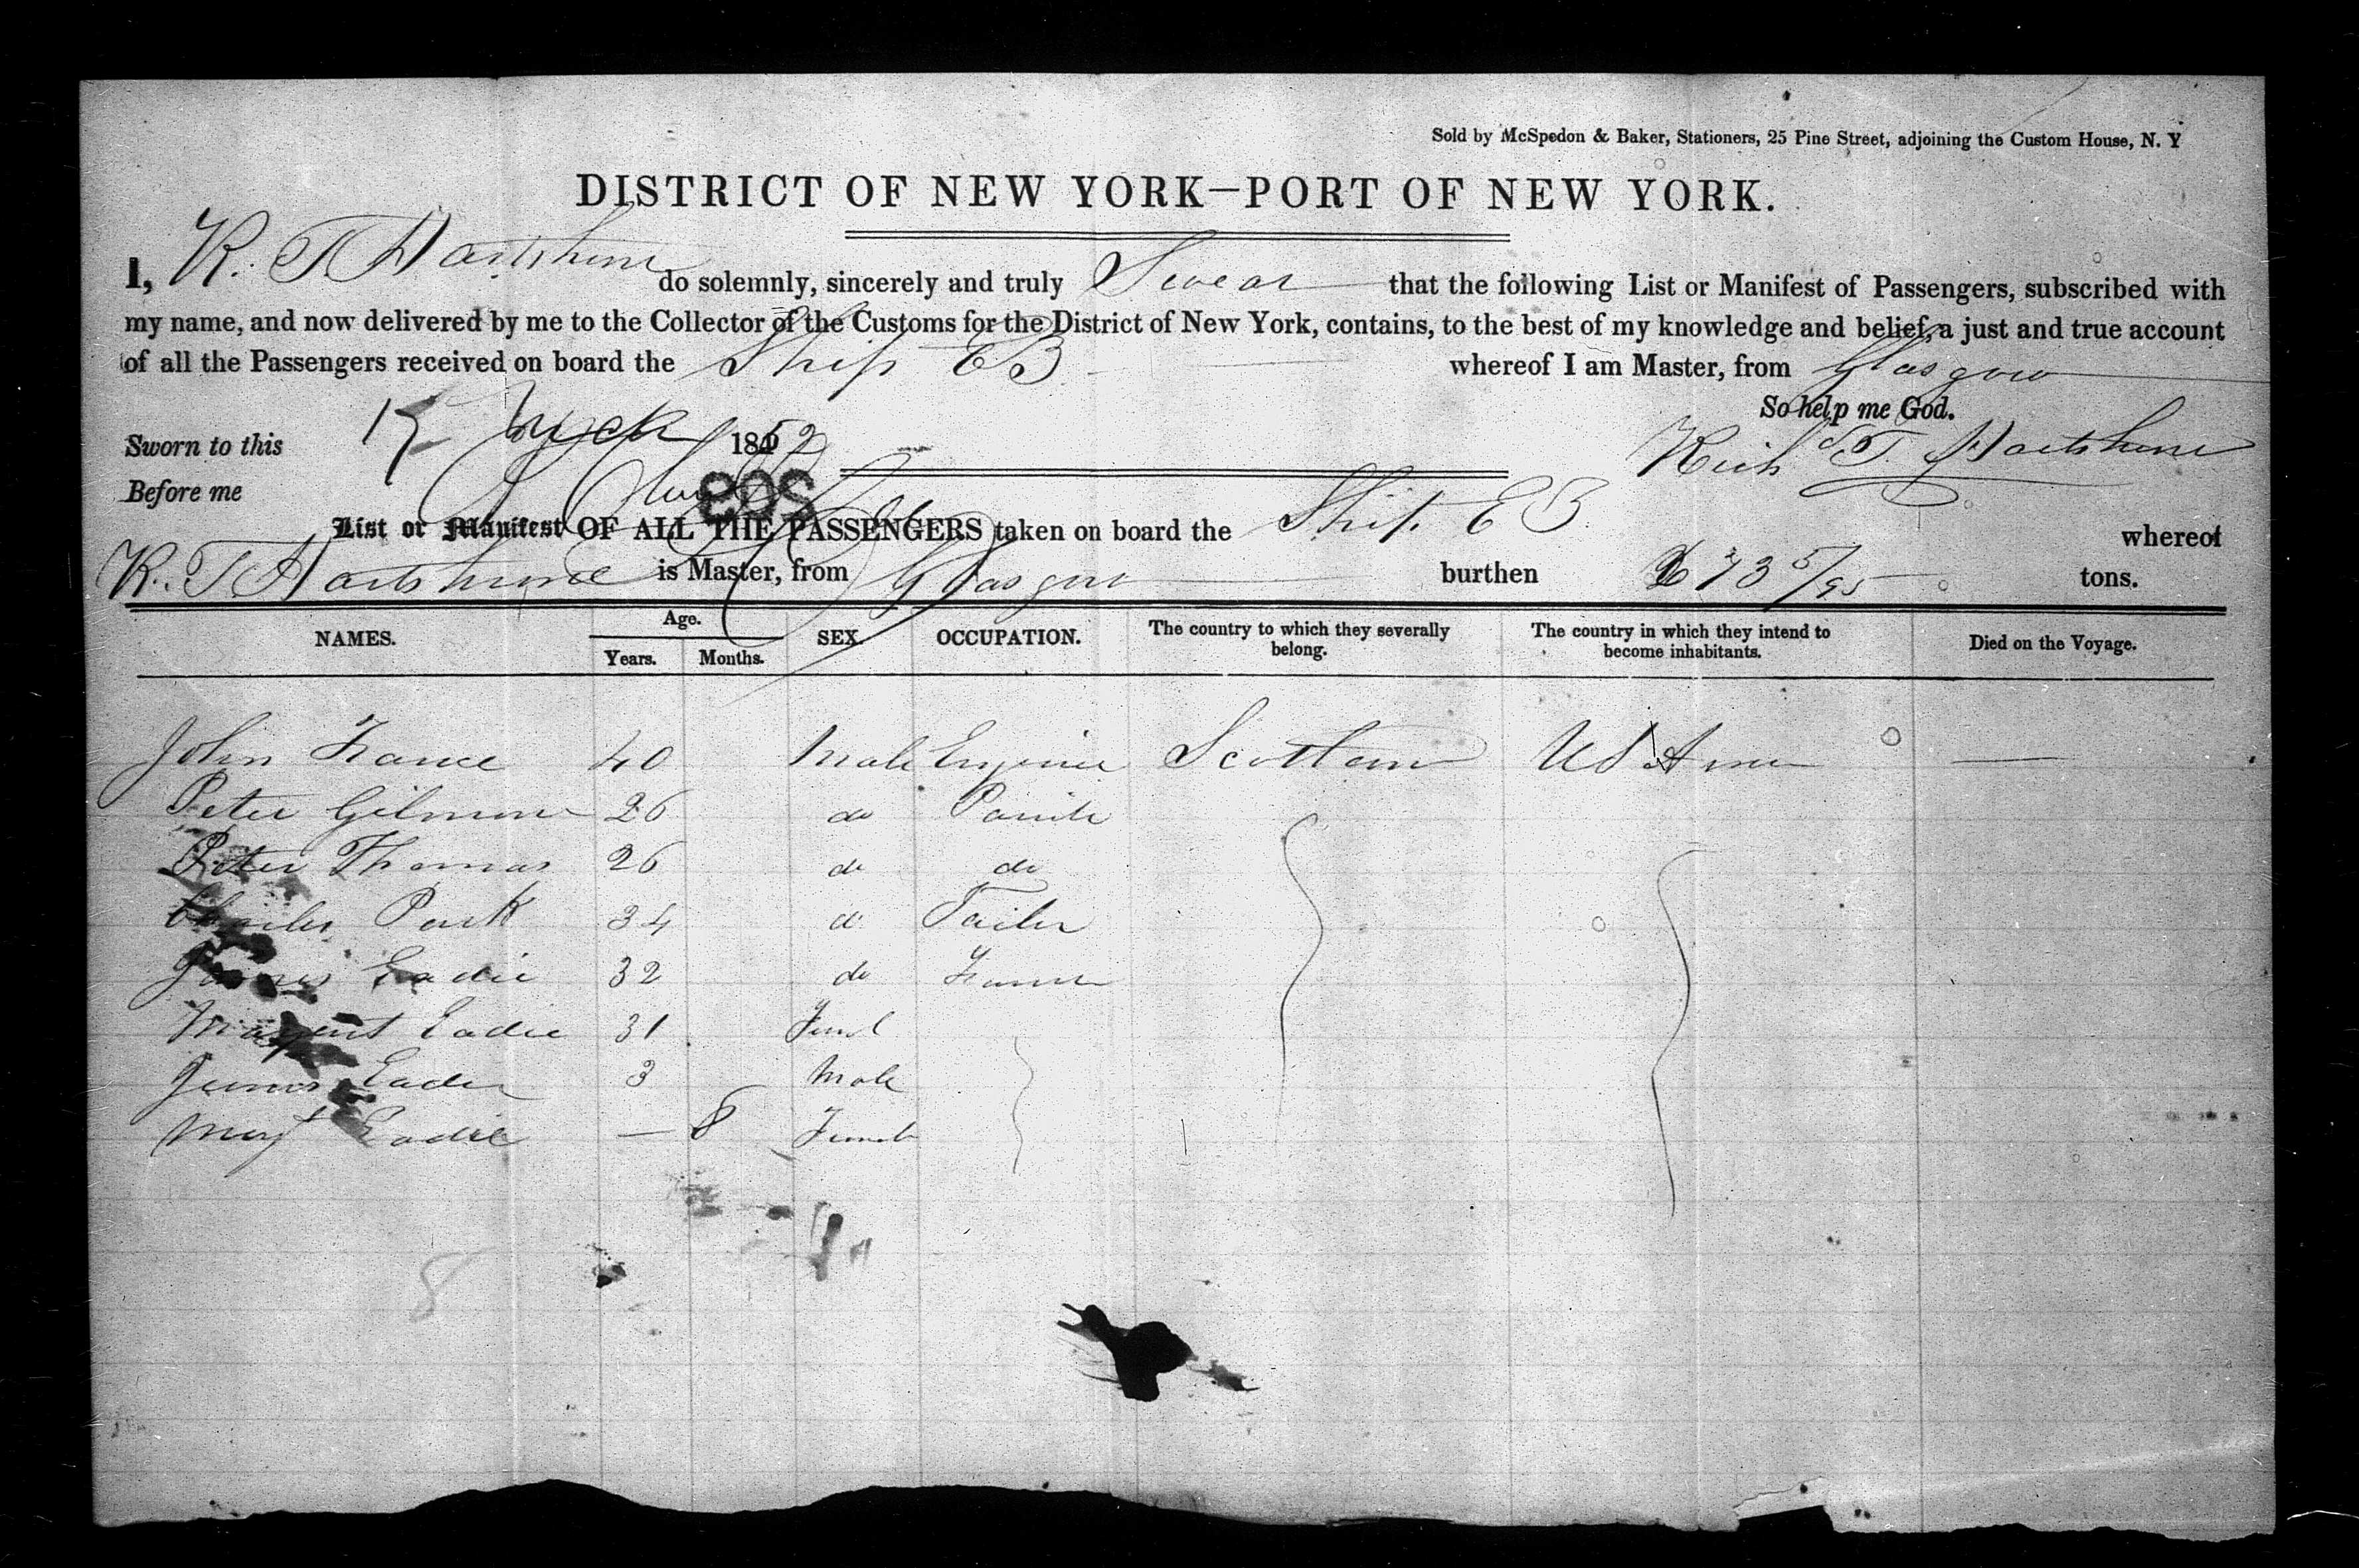 Sold by McSpedon & Baker, Stationers, 25 Pine Street, adjoining the Custom House, N. Y
DISTRICT OF NEW YORK—PORT OF NEW YORK.
I, R. T Hartshorne do solemnly, sincerely and truly Swear that the following List or Manifest of Passengers, subscribed with
my name, and now delivered by me to the Collector of the Customs for the District of New York, contains, to the best of my knowledge and belief, a just and true account
of all the Passengers received on board the Ship EB whereof I am Master, from Glasgow
So help me God.
Sworn to this 17 1852 Richd T. Hartshorne
Before me
List or Manifest OF ALL THE PASSENGERS taken on board the Ship EB whereof
R. T Hartshorne is Master, from Glasgow burthen 673 5/95 tons.
NAMES. Age. Years. Months. SEX. OCCUPATION. The country to which they severally belong. The country in which they intend to become inhabitants. Died on the Voyage.
John 40 Male Engineer Scotland US Amer —
Peter Gilmore 26 do
Peter Thomas 26 do do
Charles Park 34 d Tailor
James Eadie 32 do Farmer
Margaret Eadie 31 Femal
James Eadie 3 Male
Mary Eadie — 8 Female
8